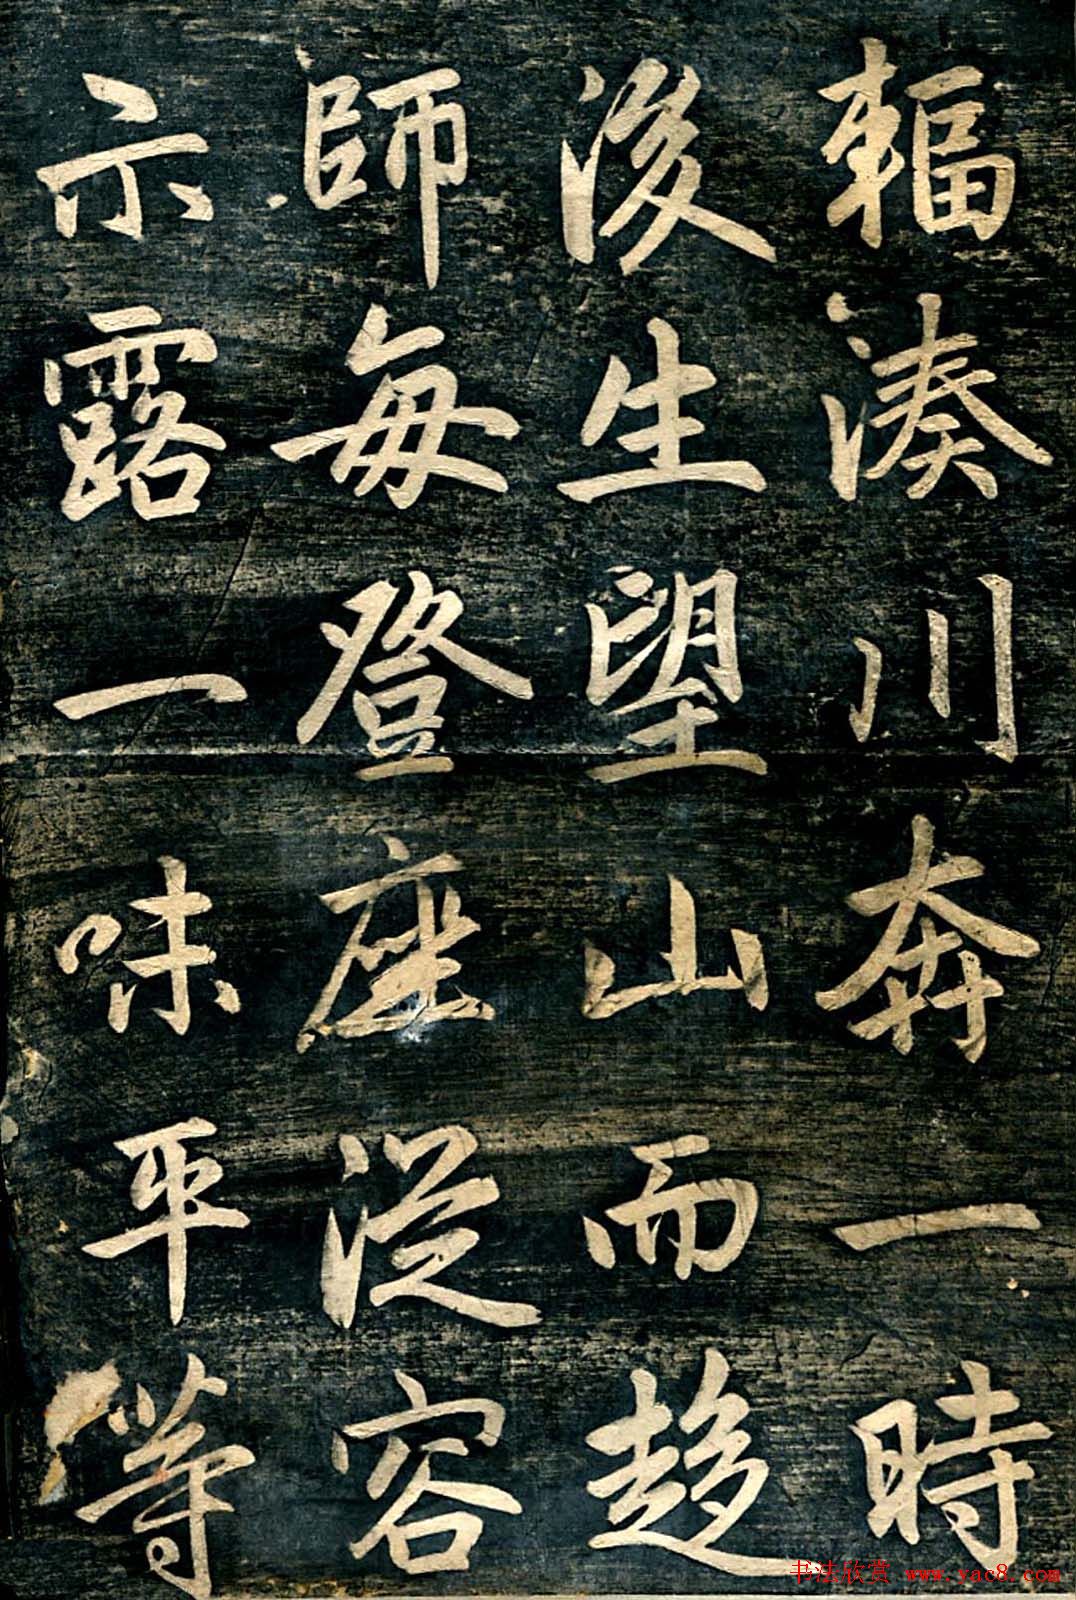 輻湊川奔一時
後生望山而趍
師每登座從容
示露一味平等
书法欣赏 www.yac8.com